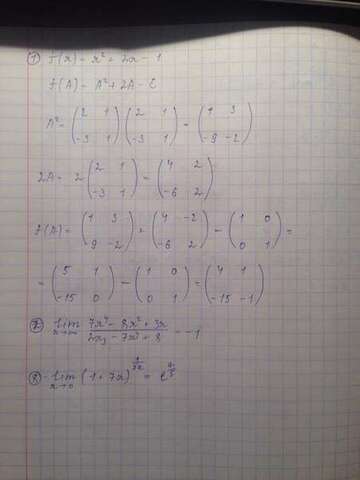 ① f(x) = x² + 2x - 1
f(A) = A² + 2A - E
A² = (2 1; -3 1) (2 1; -3 1) = (1 3; -9 -2)
2A = 2 (2 1; -3 1) = (4 2; -6 2)
f(A) = (1 3; -9 -2) + (4 -2; -6 2) - (1 0; 0 1) =
= (5 1; -15 0) - (1 0; 0 1) = (4 1; -15 -1)
② lim x→∞ (7x⁴ - 8x² + 3x)/(2x³ - 7x⁴ + 8) = -1
lim x→0 (1 + 7x)